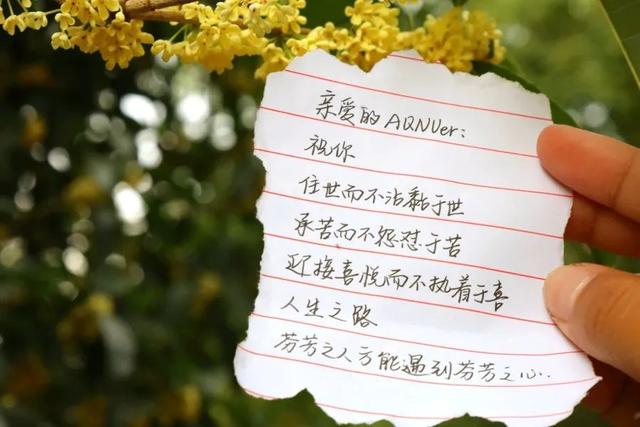 亲爱的AQNUer：
祝你
住世而不沾黏于世
承苦而不怨怼于苦
迎接喜悦而不执着于喜
人生之路
芬芳之人方能遇到芬芳之心...